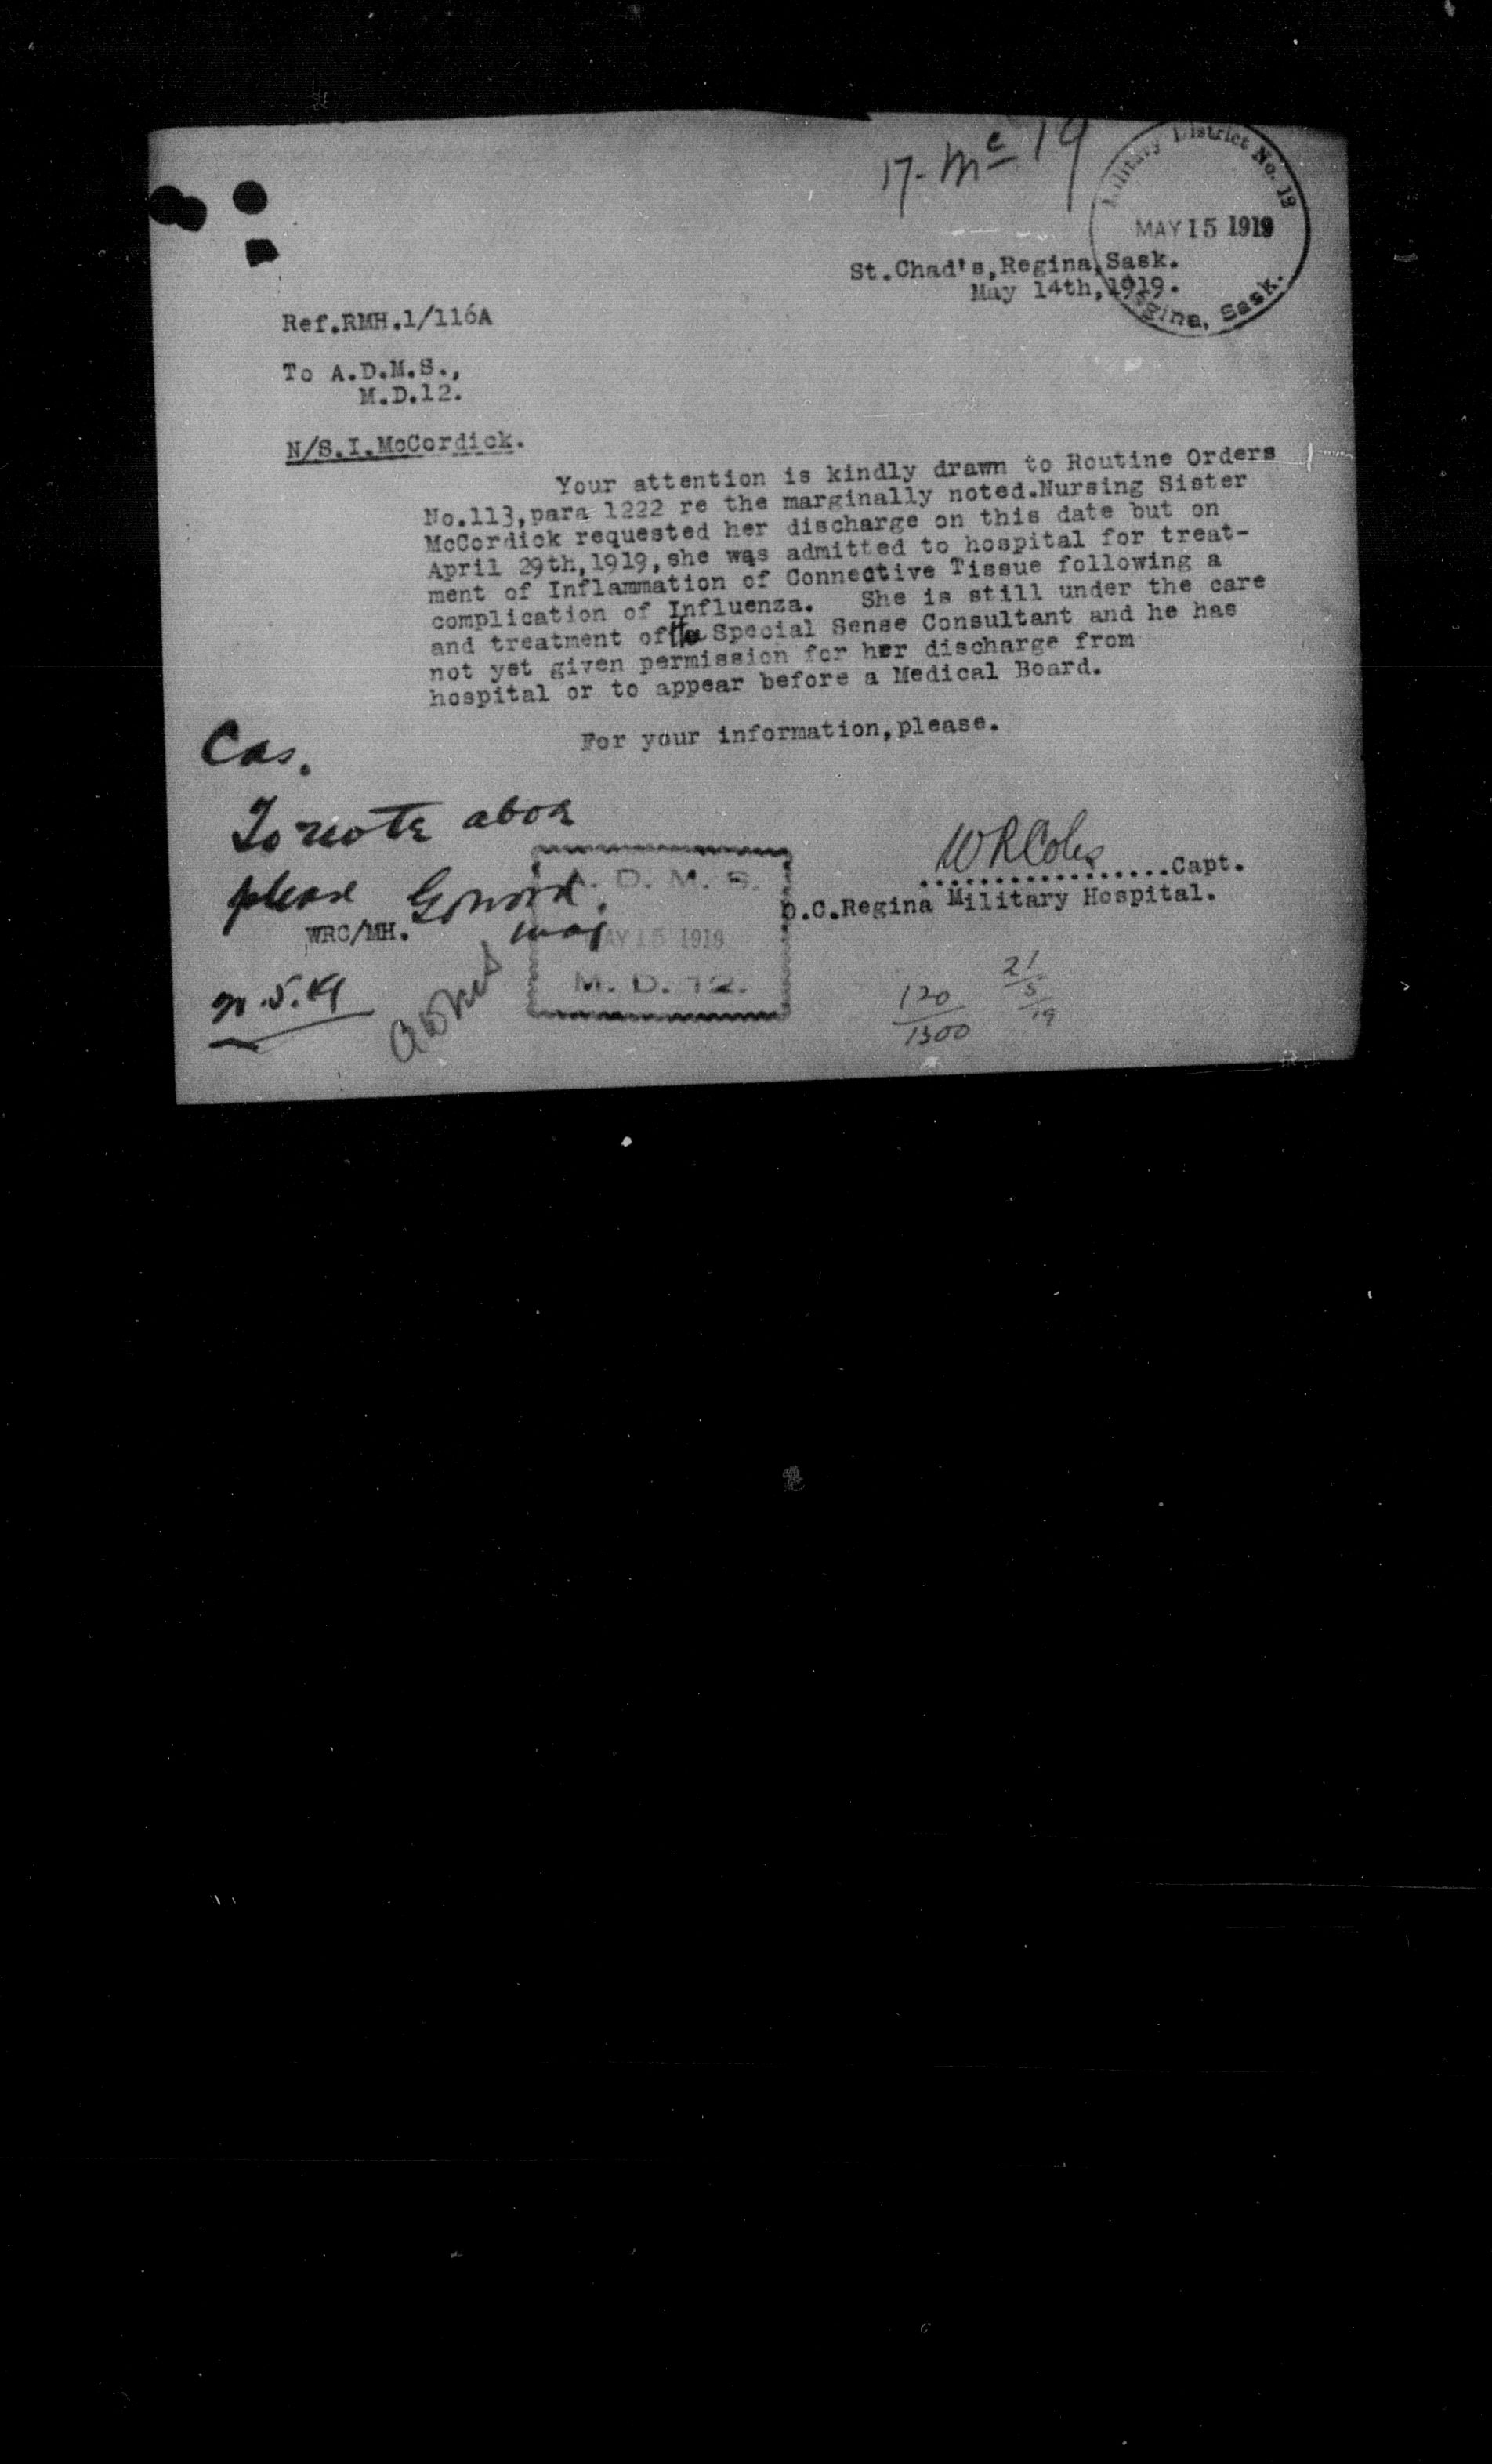 17-Mc 19
Military District No. 12
MAY 15 1919
Regina, Sask.
St.Chad's,Regina,Sask.
May 14th,1919.
Ref.RMH.1/116A
To A.D.M.S.,
M.D.12.
N/S.I.McCordick.
Your attention is kindly drawn to Routine Orders
No.113,para 1222 re the marginally noted.Nursing Sister
McCordick requested her discharge on this date but on
April 29th,1919,she was admitted to hospital for treat-
ment of Inflammation of Connective Tissue following a
complication of Influenza. She is still under the care
and treatment of the Special Sense Consultant and he has
not yet given permission for her discharge from
hospital or to appear before a Medical Board.
For your information,please.
Cas.
To note above
please
WRC/MH.
A.D.M.S.
MAY 15 1919
M.D. 12.
WRColes
Capt.
O.C.Regina Military Hospital.
120
1300
21/5/19